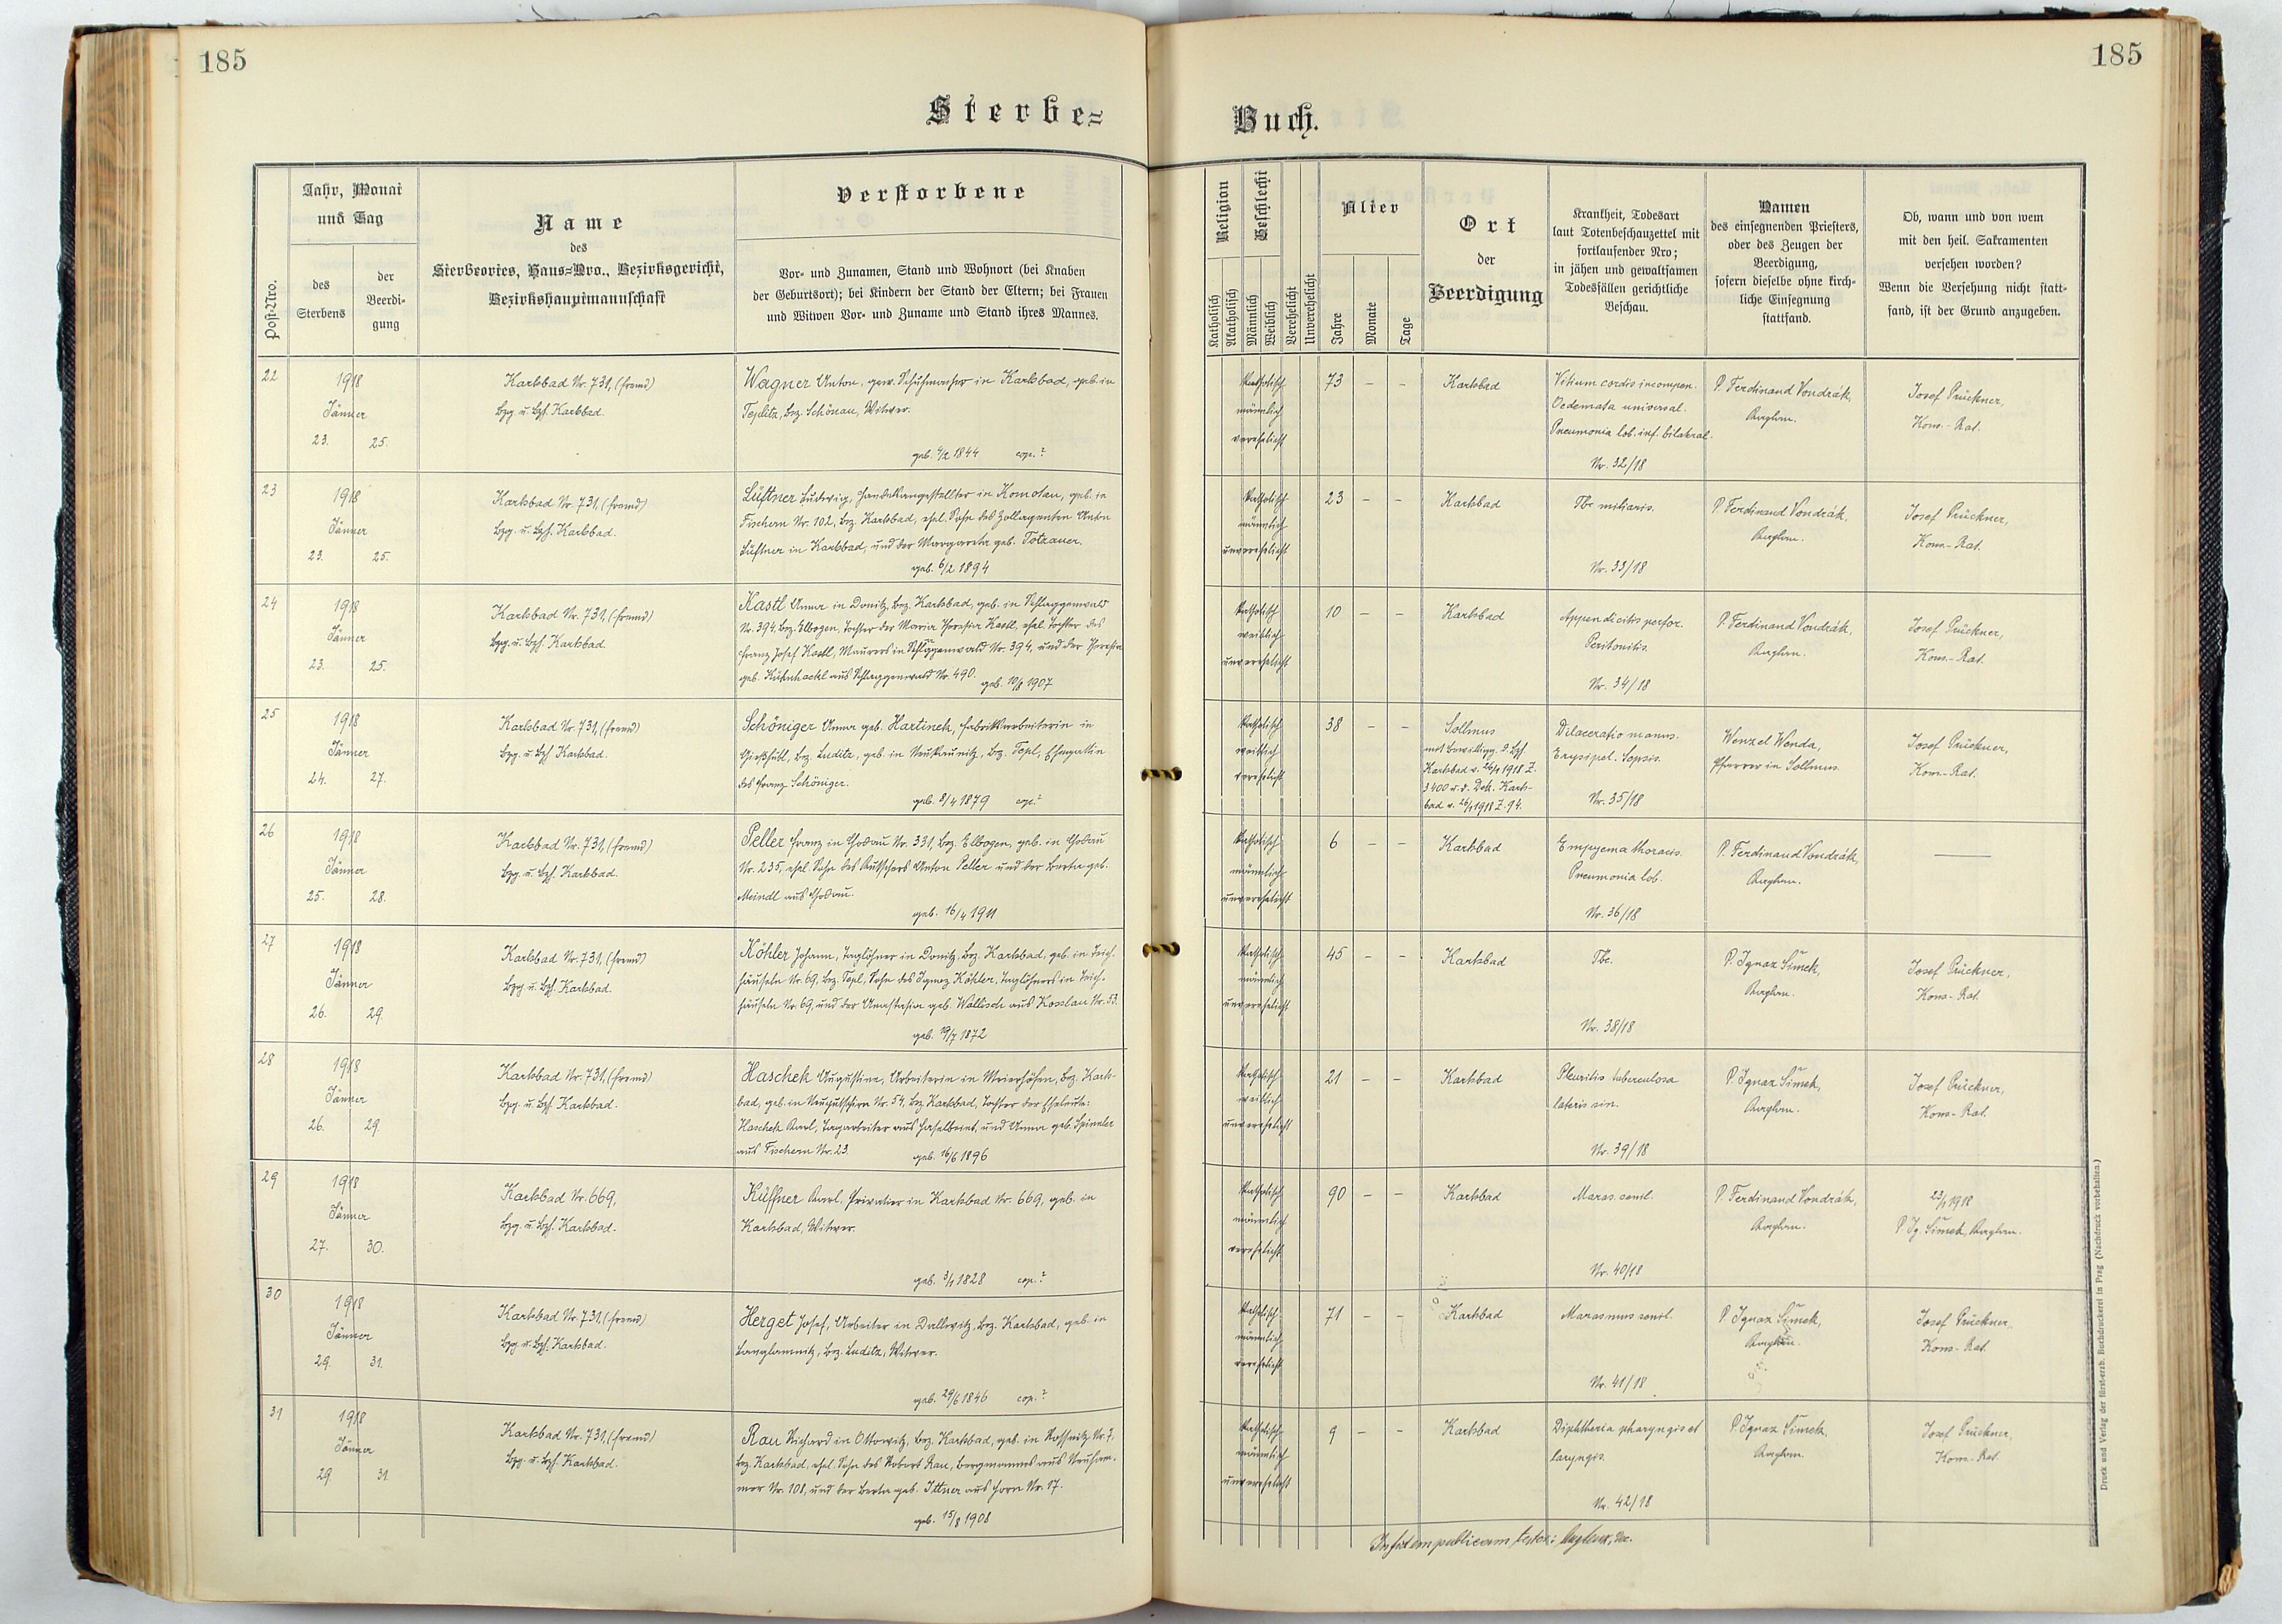 185
185
Sterbe=
Buch.
Post-Nro.
Jahr, Monat
und Tag
des
Sterbens
der
Beerdi-
gung
Name
des
Sterbeortes, Haus=Nro., Bezirksgericht,
Bezirkshauptmannschaft
Verstorbene
Vor- und Zunamen, Stand und Wohnort (bei Knaben
der Geburtsort); bei Kindern der Stand der Eltern; bei Frauen
und Witwen Vor- und Zuname und Stand ihres Mannes.
Religion
Katholisch
Akatholisch
Geschlecht
Männlich
Weiblich
Verehelicht
Unverehelicht
Alter
Jahre
Monate
Tage
Ort
der
Beerdigung
Krankheit, Todesart
laut Totenbeschauzettel mit
fortlaufender Nro;
in jähen und gewaltsamen
Todesfällen gerichtliche
Beschau.
Namen
des einsegnenden Priesters,
oder des Zeugen der
Beerdigung,
sofern dieselbe ohne kirch-
liche Einsegnung
stattfand.
Ob, wann und von wem
mit den heil. Sakramenten
versehen worden?
Wenn die Versehung nicht statt-
fand, ist der Grund anzugeben.
22
1918
Jänner
23. 25.
Karlsbad Nr. 731, (fremd)
Bzg. u. Bzh. Karlsbad.
Wagner Anton, gew. Schuhmacher in Karlsbad, geb. in
Teplitz, Bez. Schönau, Witwer.
1844 cop.?
katholisch
männlich
verehelicht
73 - -
Karlsbad
Vitium cordis incompen.
Oedemata universal.
Pneumonia lob. inf. bilateral.
Nr. 32/18
P. Ferdinand Vondrák,
Kaplan.
Josef Prückner,
Kons.-Rat.
23
1918
Jänner
23. 25.
Karlsbad Nr. 731, (fremd)
Bzg. u. Bzh. Karlsbad.
Lüftner Ludwig, Handelsangestellter in Komotau, geb. in
Fischern Nr. 102, Bez. Karlsbad, ehel. Sohn des Zollagenten Anton
Lüftner in Karlsbad, und der Margareta geb. Totzauer.
geb. 6/2 1894
katholisch
männlich
unverehelicht
23 - -
Karlsbad
Tbc miliaris.
Nr. 33/18
P. Ferdinand Vondrák,
Kaplan.
Josef Prückner,
Kons.-Rat.
24
1918
Jänner
23. 25.
Karlsbad Nr. 731, (fremd)
Bzg. u. Bzh. Karlsbad.
Kastl Anna in Donitz, Bez. Karlsbad, geb. in Schlaggenwald
Nr. 394, Bez. Elbogen, Tochter der Maria Theresia Kastl, ehel. Tochter des
Franz Josef Kastl, Maurers in Schlaggenwald Nr. 394, und der Theresia
geb. Kühnhackl aus Schlaggenwald Nr. 490.
geb. 10/8 1907
katholisch
weiblich
unverehelicht
10 - -
Karlsbad
Appendicitis perfor.
Peritonitis.
Nr. 34/18
P. Ferdinand Vondrák,
Kaplan.
Josef Prückner,
Kons.-Rat.
25
1918
Jänner
24. 27.
Karlsbad Nr. 731, (fremd)
Bzg. u. Bzh. Karlsbad.
Schöniger Anna geb. Hartinek, Fabriksarbeiterin in
Gießhübl, Bez. Luditz, geb. in Neukaunitz, Bez. Tepl, Ehegattin
des Franz Schöniger.
geb. 8/4 1879 cop.?
katholisch
weiblich
verehelicht
38 - -
Sollmus
mit Bewilligg. d. Bzh.
Karlsbad v. 26/1 1918 Z.
3400 u. d. Dek. Karls-
bad v. 26/1 1918 Z. 94.
Dilaceratio manus.
Erysipel. Sepsis.
Nr. 35/18
Wenzel Wonda,
Pfarrer in Sollmus.
Josef Prückner,
Kons.-Rat.
26
1918
Jänner
25. 28.
Karlsbad Nr. 731, (fremd)
Bzg. u. Bzh. Karlsbad.
Peller Franz in Chodau Nr. 331, Bez. Elbogen, geb. in Chodau
Nr. 235, ehel. Sohn des Kutschers Anton Peller und der Berta geb.
Meindl aus Chodau.
geb. 16/4 1911
katholisch
männlich
unverehelicht
6 - -
Karlsbad
Empyema thoracis.
Pneumonia lob.
Nr. 36/18
P. Ferdinand Vondrák,
Kaplan.
27
1918
Jänner
26. 29.
Karlsbad Nr. 731, (fremd)
Bzg. u. Bzh. Karlsbad.
Köhler Johann, Taglöhner in Donitz, Bez. Karlsbad, geb. in Teich-
häuseln Nr. 69, Bez. Tepl, Sohn des Ignaz Köhler, Taglöhners in Teich-
häuseln Nr. 69, und der Anastasia geb. Wallisch aus Kosslau Nr. 53.
geb. 19/7 1872
katholisch
männlich
unverehelicht
45 - -
Karlsbad
Tbc.
Nr. 38/18
P. Ignaz Šimek,
Kaplan.
Josef Prückner,
Kons.-Rat.
28
1918
Jänner
26. 29.
Karlsbad Nr. 731, (fremd)
Bzg. u. Bzh. Karlsbad.
Haschek Augustine, Arbeiterin in Meierhöfen, Bez. Karls-
bad, geb. in Nr. 54, Bez. Karlsbad, Tochter der Eheleute:
Haschek Karl, Tagarbeiter aus und Anna geb. Spinnler
aus Fischern Nr. 23.
geb. 16/6 1896
katholisch
weiblich
unverehelicht
21 - -
Karlsbad
Pleuritis tuberculosa
lateris sin.
Nr. 39/18
P. Ignaz Šimek,
Kaplan.
Josef Prückner,
Kons.-Rat.
29
1918
Jänner
27. 30.
Karlsbad Nr. 669,
Bzg. u. Bzh. Karlsbad.
Küffner Karl, Privatier in Karlsbad Nr. 669, geb. in
Karlsbad, Witwer.
geb. 3/1 1828 cop.?
katholisch
männlich
verehelicht
90 - -
Karlsbad
Maras. senil.
Nr. 40/18
P. Ferdinand Vondrák,
Kaplan.
23/1 1918
P. Ig. Šimek, Kaplan.
30
1918
Jänner
29. 31.
Karlsbad Nr. 731, (fremd)
Bzg. u. Bzh. Karlsbad.
Herget Josef, Arbeiter in Dallwitz, Bez. Karlsbad, geb. in
Langlamnitz, Bez. Luditz, Witwer.
geb. 29/6 1846 cop.?
katholisch
männlich
verehelicht
71 - -
Karlsbad
Marasmus senil.
Nr. 41/18
P. Ignaz Šimek,
Kaplan.
Josef Prückner,
Kons.-Rat.
31
1918
Jänner
29 31.
Karlsbad Nr. 731, (fremd)
Bzg. u. Bzh. Karlsbad.
Rau Richard in Ottowitz, Bez. Karlsbad, geb. in Rossnitz Nr. 7,
Bez. Karlsbad, ehel. Sohn des Robert Rau, Bergmannes aus
Nr. 108, und der Berta geb. Ittner aus Horn Nr. 17.
geb. 15/8 1908
katholisch
männlich
unverehelicht
9 - -
Karlsbad
Diphtheria pharyngis et
laryngis.
Nr. 42/18
P. Ignaz Šimek,
Kaplan.
Josef Prückner,
Kons.-Rat.
In fidem publicam testor:
Druck und Verlag der fürst-erzb. Buchdruckerei in Prag (Nachdruck vorbehalten.)